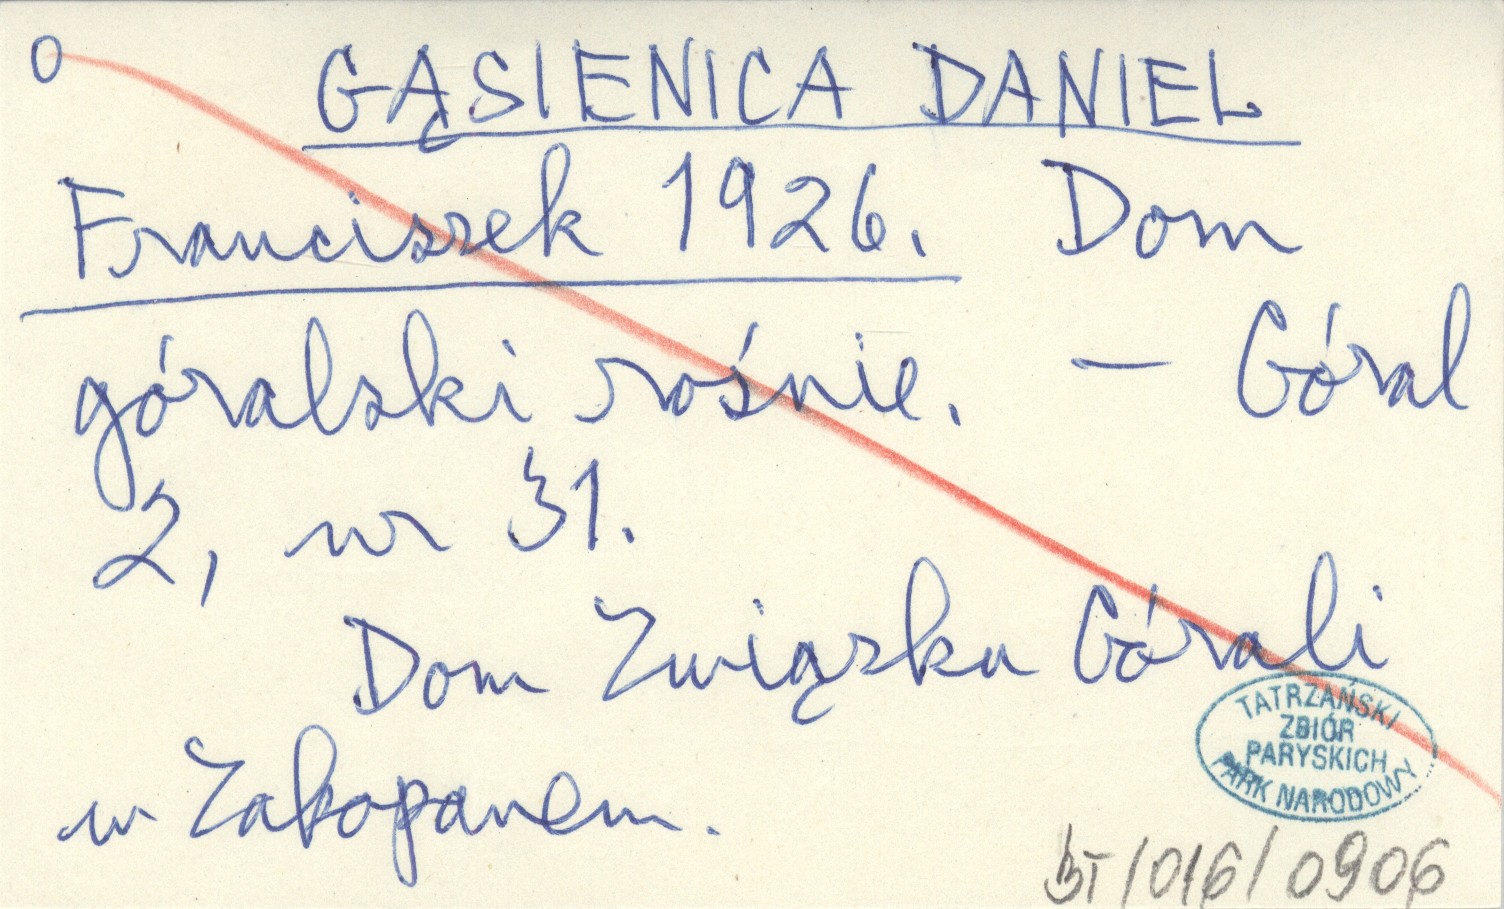 O GĄSIENICA DANIEL
Franciszek 1926. Dom
góralski rośnie. — Góral
2, nr 31.
Dom Związku Górali
w Zakopanem.
TATRZAŃSKI
ZBIÓR
PARYSKICH
PARK NARODOWY
BT/016/0906